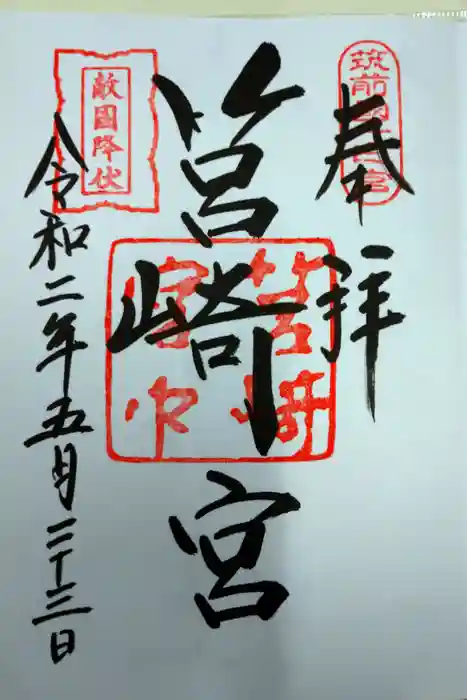 筑前國一宮
奉拝
筥崎宮
筥崎
宮印
敵國降伏
令和二年五月二十三日